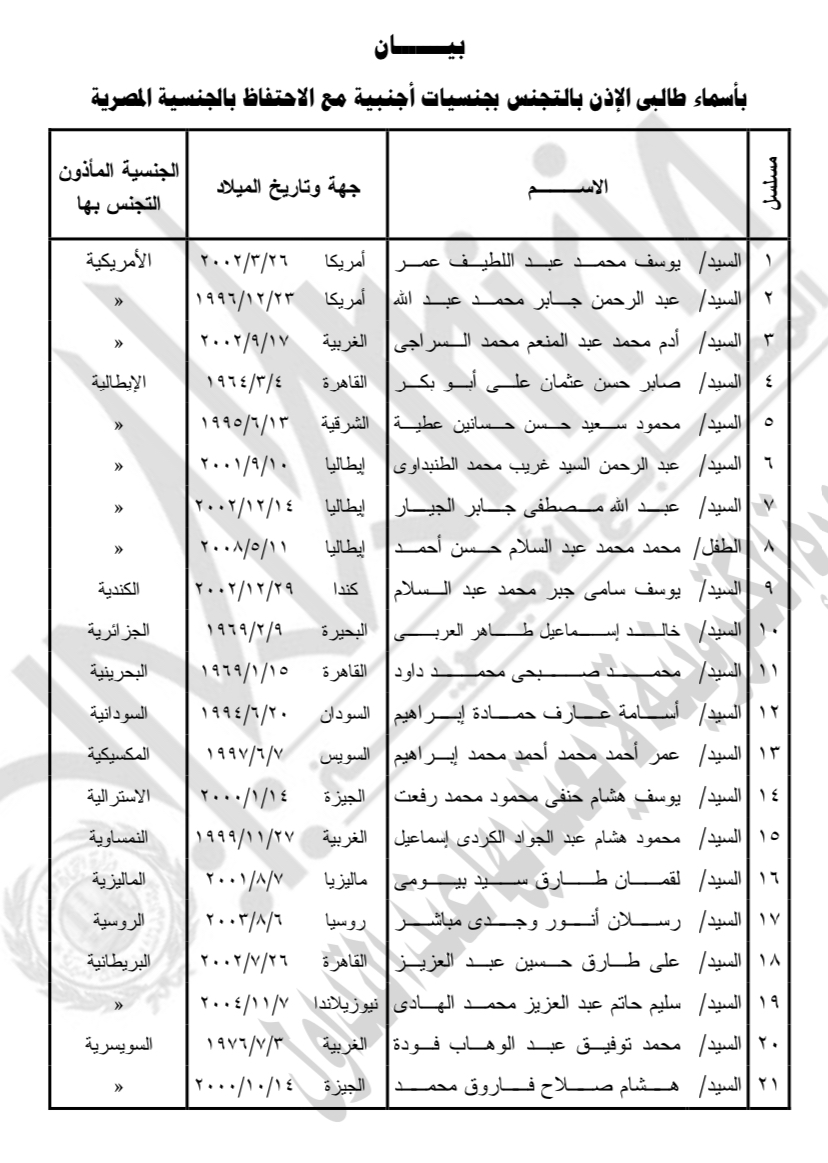 بيـــــان
بأسماء طالبى الإذن بالتجنس بجنسيات أجنبية مع الاحتفاظ بالجنسية المصرية
مسلسل الاســـــم جهة وتاريخ الميلاد الجنسية المأذون التجنس بها
١ السيد/ يوسف محمـــد عبـــد اللطيـــف عمـــر أمريكا ٢٠٠٢/٣/٢٦ الأمريكية
٢ السيد/ عبد الرحمن جـــابر محمـــد عبـــد الله أمريكا ١٩٩٦/١٢/٢٣ »
٣ السيد/ أدم محمد عبد المنعم محمد الـــسراجى الغربية ٢٠٠٢/٩/١٧ »
٤ السيد/ صابر حسن عثمان علـــى أبـــو بكـــر القاهرة ١٩٦٤/٣/٤ الإيطالية
٥ السيد/ محمود ســـعيد حـــسن حـــسانين عطيـــة الشرقية ١٩٩٥/٦/١٣ »
٦ السيد/ عبد الرحمن السيد غريب محمد الطنبداوى إيطاليا ٢٠٠١/٩/١٠ »
٧ السيد/ عبـــد الله مـــصطفى جـــابر الجيـــار إيطاليا ٢٠٠٢/١٢/١٤ »
٨ الطفل/ محمد محمد عبد السلام حـــسن أحمـــد إيطاليا ٢٠٠٨/٥/١١ »
٩ السيد/ يوسف سامى جبر محمد عبد الـــسلام كندا ٢٠٠٢/١٢/٢٩ الكندية
١٠ السيد/ خالـــد إســـماعيل طـــاهر العربـــى البحيرة ١٩٦٩/٢/٩ الجزائرية
١١ السيد/ محمـــد صـــبحى محمـــد داود القاهرة ١٩٦٩/١/١٥ البحرينية
١٢ السيد/ أســـامة عـــارف حمـــادة إبـــراهيم السودان ١٩٩٤/٦/٢٠ السودانية
١٣ السيد/ عمر أحمد محمد أحمد محمد إبـــراهيم السويس ١٩٩٧/٦/٧ المكسيكية
١٤ السيد/ يوسف هشام حنفى محمود محمد رفعت الجيزة ٢٠٠٠/١/١٤ الاسترالية
١٥ السيد/ محمود هشام عبد الجواد الكردى إسماعيل الغربية ١٩٩٩/١١/٢٧ النمساوية
١٦ السيد/ لقمـــان طـــارق ســـيد بيـــومى ماليزيا ٢٠٠١/٨/٧ الماليزية
١٧ السيد/ رســـلان أنـــور وجـــدى مباشـــر روسيا ٢٠٠٣/٨/٦ الروسية
١٨ السيد/ على طـــارق حـــسين عبـــد العزيـــز القاهرة ٢٠٠٢/٧/٢٦ البريطانية
١٩ السيد/ سليم حاتم عبد العزيز محمـــد الهـــادى نيوزيلاندا ٢٠٠٤/١١/٧ »
٢٠ السيد/ محمد توفيـــق عبـــد الوهـــاب فـــودة الغربية ١٩٧٦/٧/٣ السويسرية
٢١ السيد/ هـــشام صـــلاح فـــاروق محمـــد الجيزة ٢٠٠٠/١٠/١٤ »